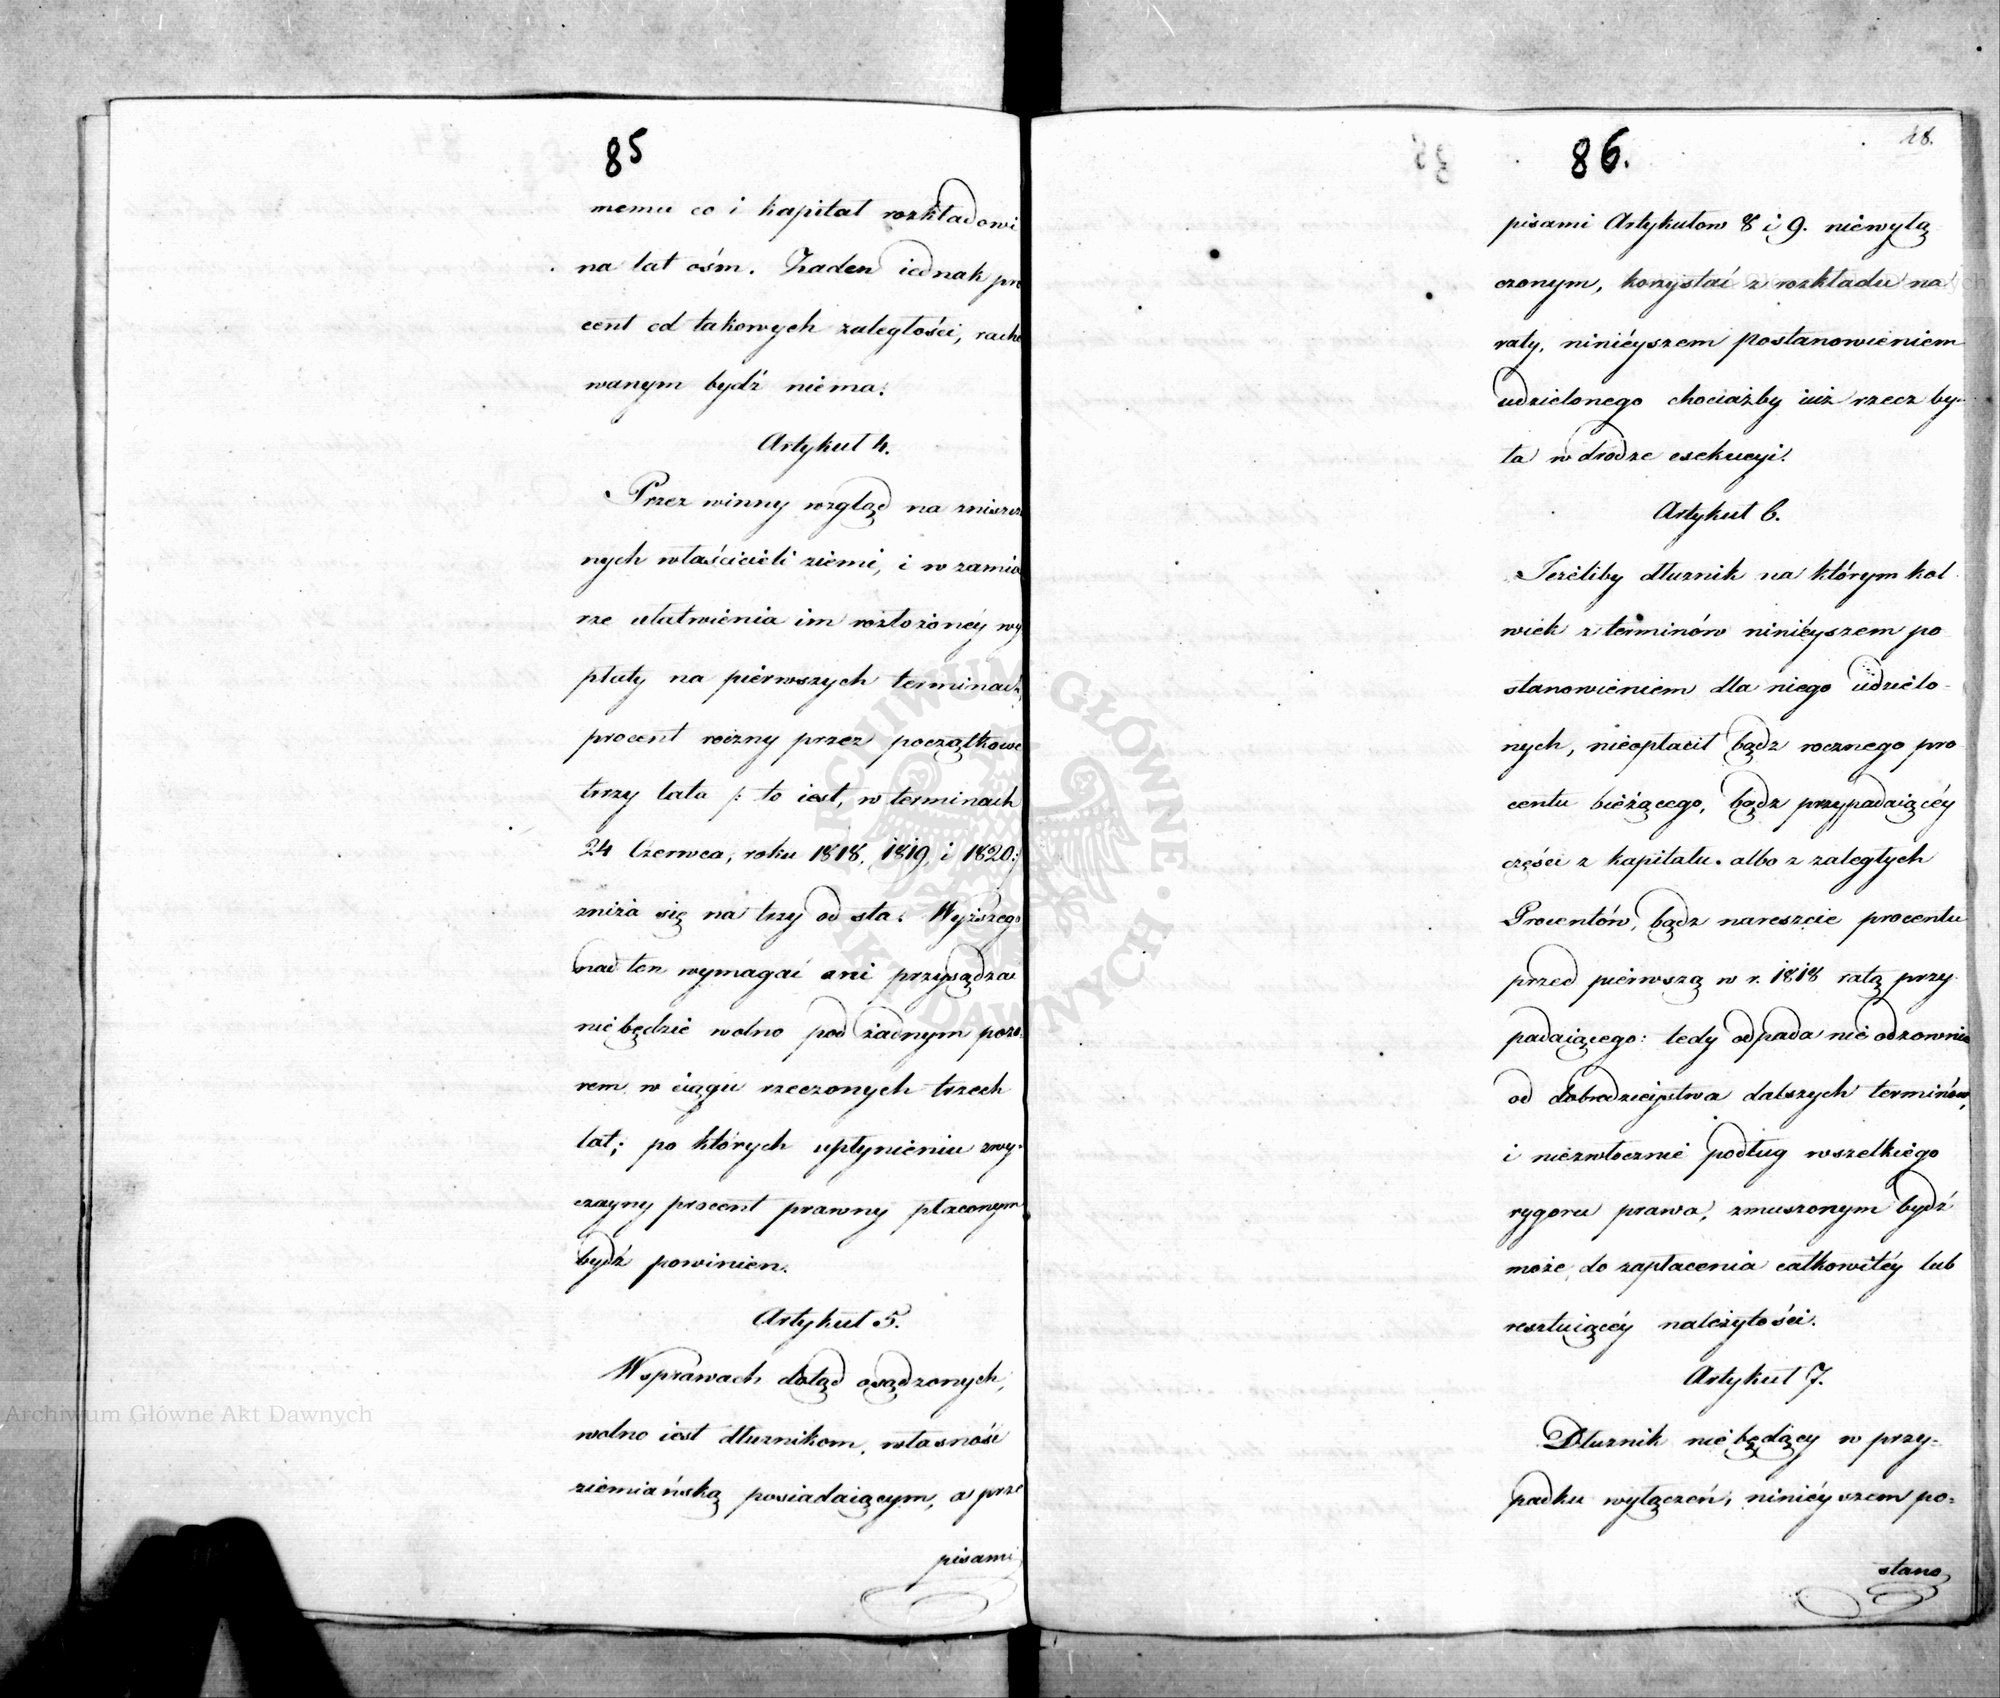 85
memu co i kapitał rozkładowi
na lat ośm. Żaden iednak pro
cent od takowych zaległości, racho
wanym bydź niema.
Artykuł 4.
Przez winny wzgląd na zniszczo
nych właścicieli ziemi, i w zamia
rze ułatwienia im rozłożonéy wy
płaty na pierwszych terminach,
procent roczny przez początkowe
trzy lata /: to iest, w terminach
24 Czerwca, roku 1818, 1819, i 1820:/
zniża się na trzy od sta. Wyższego
nad ten wymagać ani przysądzać
nie będzie wolno pod żadnym pozo-
rem w ciągu rzeczonych trzech
lat; po których upłynieniu zwy-
czayny procent prawny płaconym
bydź powinien.
Artykuł 5.
W sprawach dotąd osądzonych,
wolno iest dłużnikom, własność
ziemiańską posiadaiącym, a prze
pisami
86.
48.
pisami Artykułow 8 i 9. niewyłą
czonym, korzystać z rozkładu na
raty, ninieyszem postanowieniem
udzielonego chociażby iuż rzecz by-
ła w drodze exekucyi.
Artykuł 6.
Jeżeliby dłużnik na którym kol
wiek z terminów ninieyszem po
stanowieniem dla niego udzielo-
nych, nieopłacił bądź rocznego pro
centu bieżącego, bądz przypadaiącéy
części z kapitału, albo z zaległych
Procentów, bądz nareszcie procentu
przed pierwszą w r. 1818 ratą przy
padaiącego: tedy odpada nieodzownie
od dobrodzieystwa dalszych terminów,
i niezwłocznie podług wszelkiego
rygoru prawa, zmuszonym bydź
może do zapłacenia całkowitéy lub
resztuiącéy należytości.
Artykuł 7.
Dłużnik nie będący w przy-
padku wyłączeń, ninieyszem po-
stano
ARCHIWUM GŁÓWNE AKT DAWNYCH
Archiwum Główne Akt Dawnych